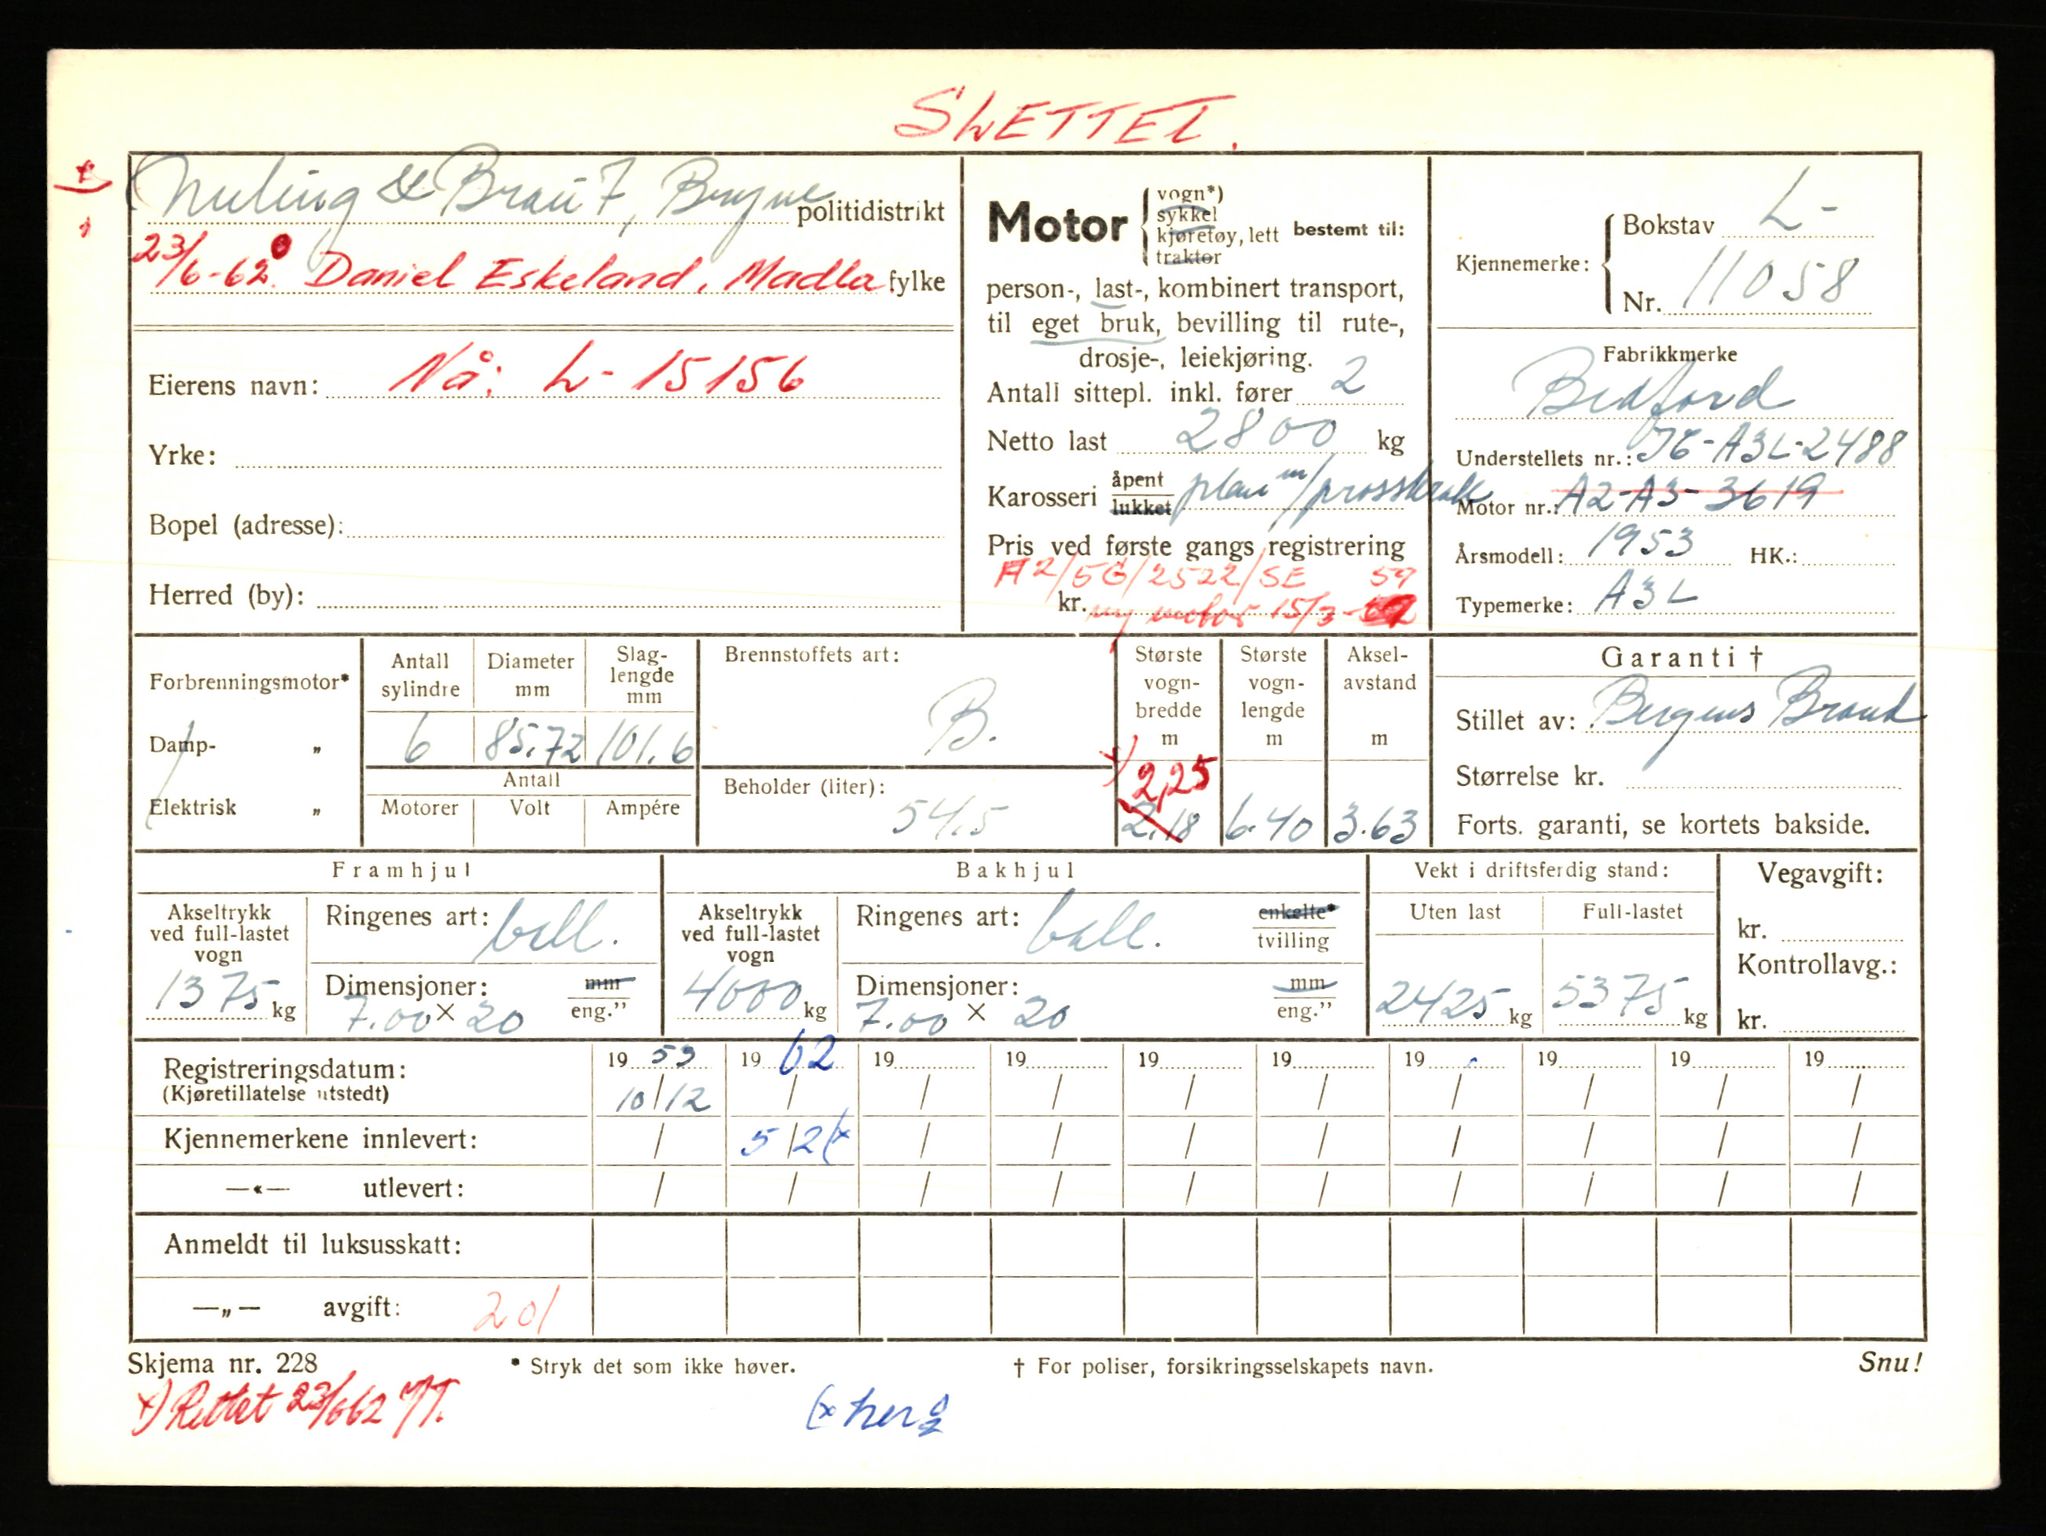 SLETTET.
& Braut, Bryne politidistrikt
23/6-62. Daniel Eskeland, Madla fylke
Eierens navn: Nå: L- 15156
Yrke:
Bopel (adresse):
Herred (by):
Motor { vogn*)
sykkel
kjøretøy, lett
traktor
bestemt til:
person-, last-, kombinert transport,
til eget bruk, bevilling til rute-,
drosje-, leiekjøring.
Antall sittepl. inkl. fører 2
Netto last 2800 kg
Karosseri åpent
lukket plan m/
Pris ved første gangs registrering
A2/5G/2522/SE 59
kr. ny motor 15/3-
Kjennemerke: { Bokstav L-
Nr. 11058
Fabrikkmerke
Bedford
Understellets nr.: JE-A3L-2488
Motor nr.: A2-A3-3619
Årsmodell: 1953 HK.:
Typemerke: A3L
Forbrenningsmotor*
Damp- „
Elektrisk „
Antall sylindre 6
Diameter mm 85.72
Slag-lengde mm 101.6
Antall
Motorer Volt Ampére
Brennstoffets art: B.
Beholder (liter): 54,5
Største vogn-bredde m x) 2,25 2.18
Største vogn-lengde m 6.40
Aksel-avstand m 3.63
Garanti †
Stillet av: Bergens Brand
Størrelse kr.
Forts. garanti, se kortets bakside.
Framhjul
Akseltrykk ved full-lastet vogn 1375 kg
Ringenes art: ball.
Dimensjoner: mm
7.00 × 20 eng.”
Bakhjul
Akseltrykk ved full-lastet vogn 4000 kg
Ringenes art: ball. enkelte*
tvilling
Dimensjoner: mm
7.00 × 20 eng.”
Vekt i driftsferdig stand:
Uten last Full-lastet
2425 kg 5375 kg
Vegavgift:
kr.
Kontrollavg.:
kr.
Registreringsdatum: 19 53 19 62 19 19 19 19 19 19 19 19
(Kjøretillatelse utstedt) 10/12 / / / / / / / / /
Kjennemerkene innlevert: / 5/2 (x / / / / / / / /
—«— utlevert: / / / / / / / / / /
Anmeldt til luksusskatt:
—„— avgift: 201
Skjema nr. 228 * Stryk det som ikke høver. † For poliser, forsikringsselskapets navn. Snu!
x) Rettet 23/662
(x herg